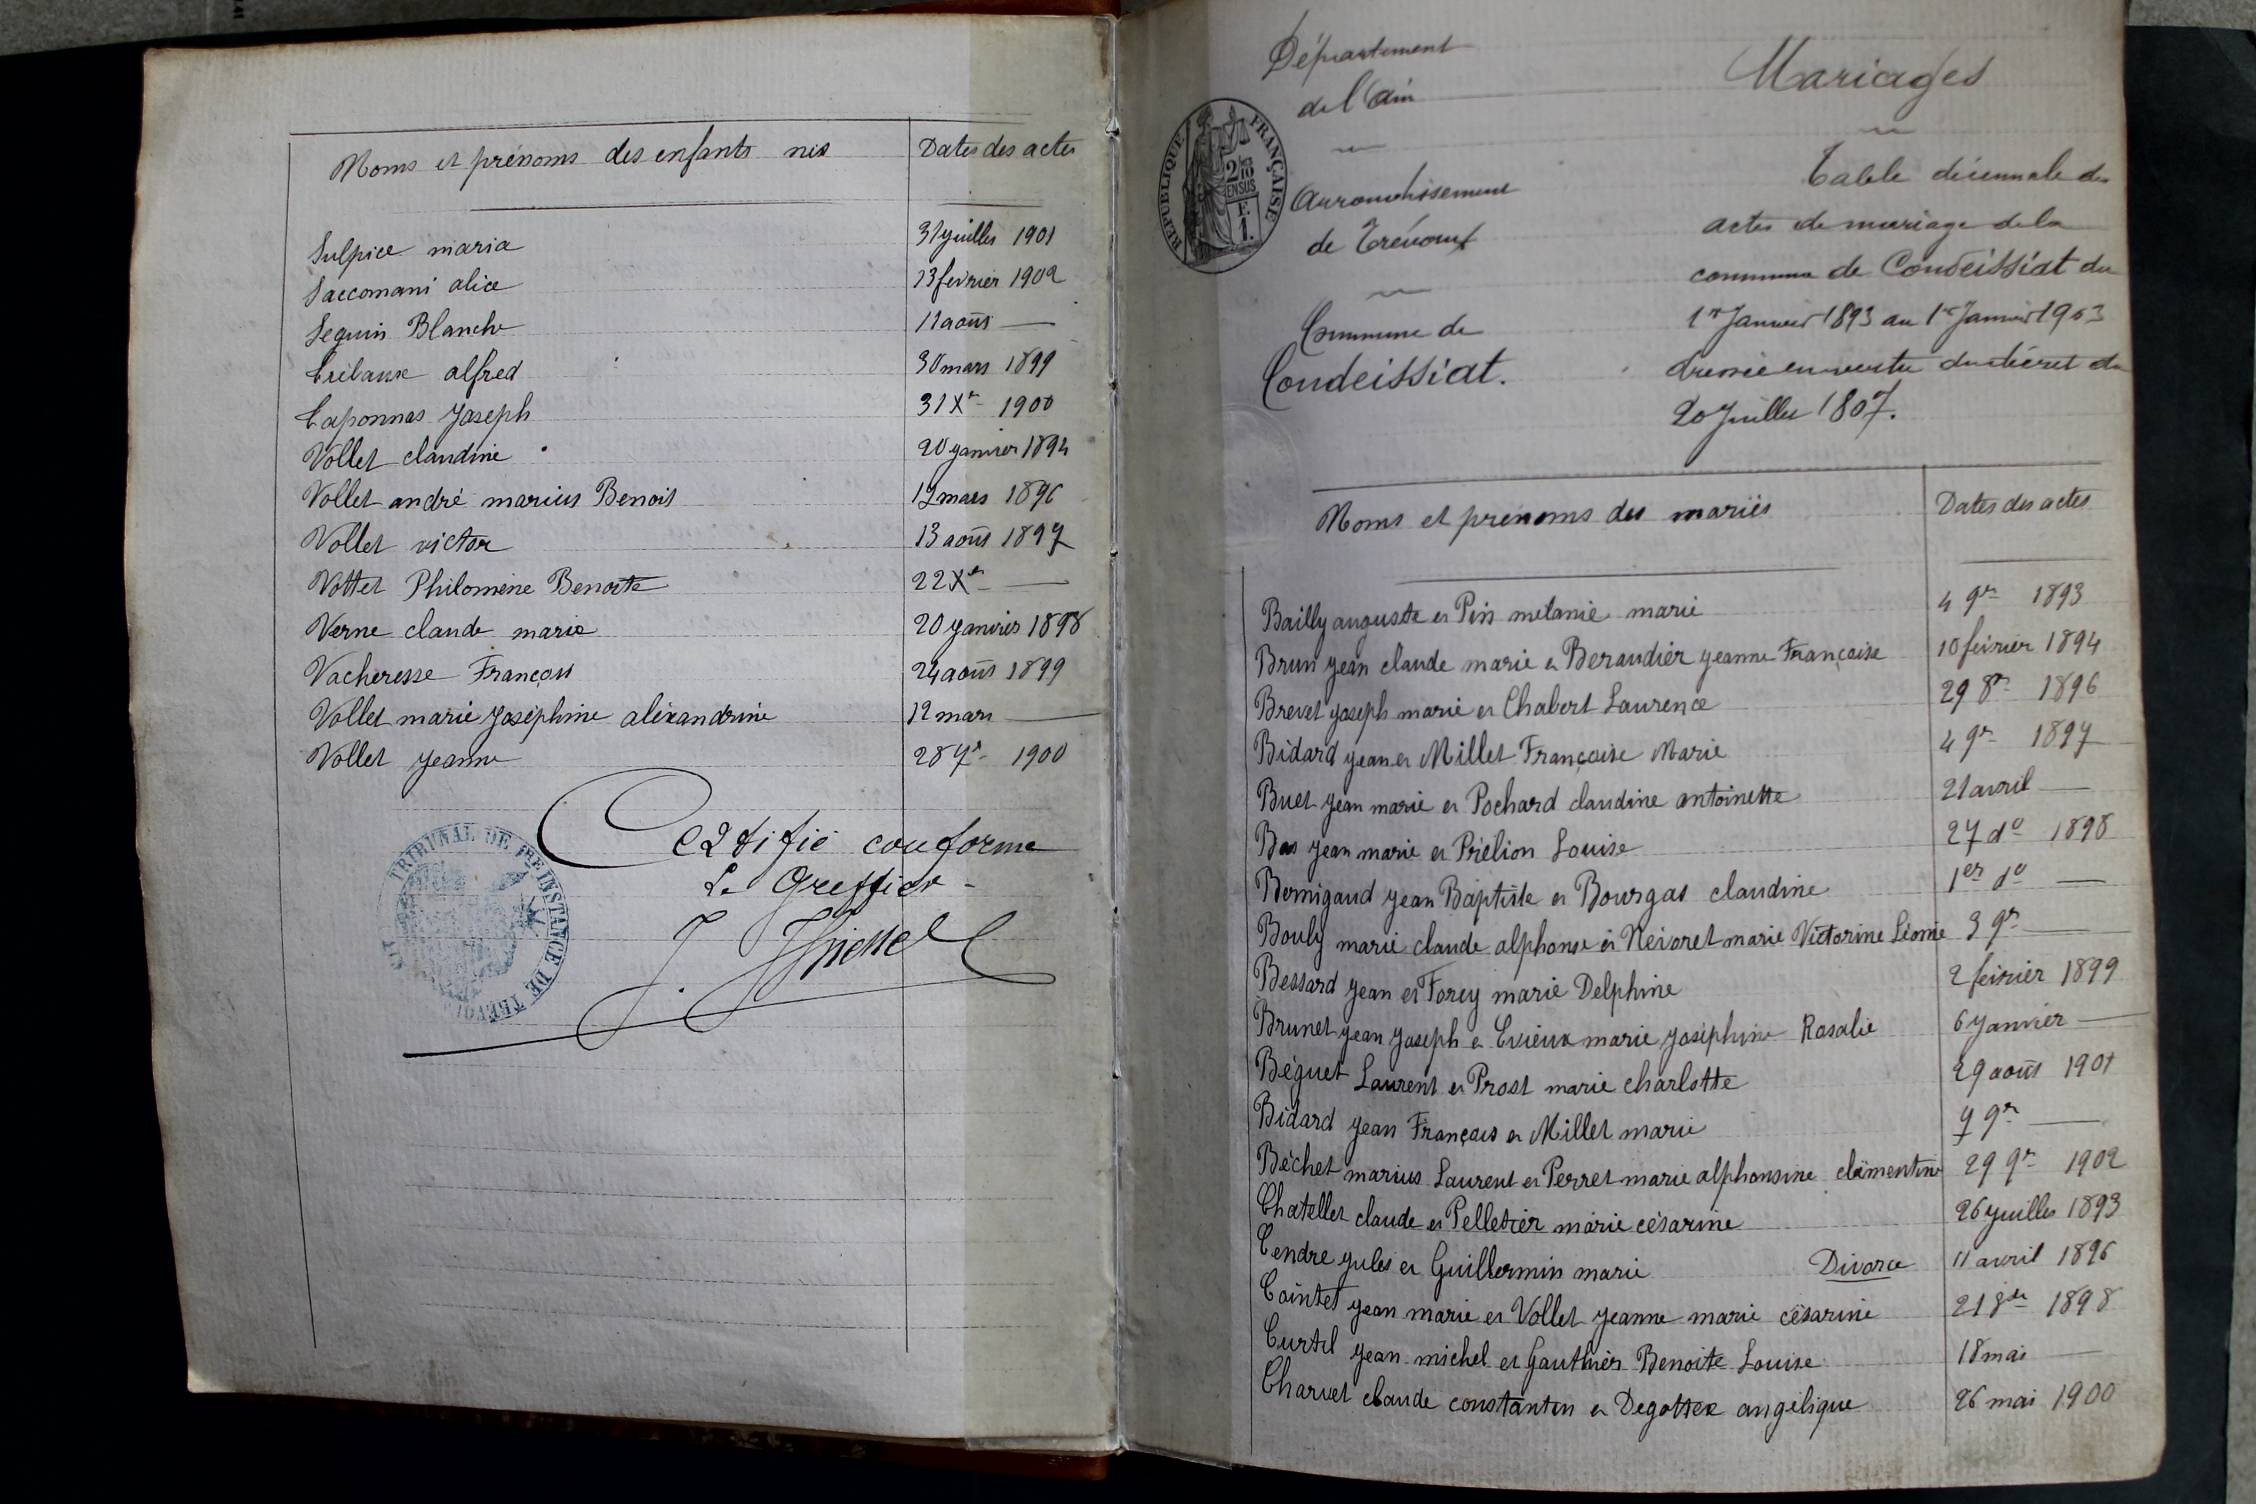 Noms et prénoms des enfants nés Dates des actes
Sulpice maria 31 juillet 1901
Saccomani alice 13 février 1902
Seguin Blanche 11 août —
alfred 30 mars 1899
Taponnas Joseph 31 Xre 1900
Vollet claudine 20 janvier 1894
Vollet andré marius Benoit 12 mars 1896
Vollet victor 13 août 1897
Vollet Philomène Benoite 22 Xre —
Verne claude marie 20 janvier 1898
Vacheresse François 24 août 1899
Vollet marie Joséphine aléxandrine 12 mars —
Vollet jeanne 28 7re 1900
Certifié conforme
Le Greffier
J.
TRIBUNAL DE 1ERE INSTANCE DE TRÉVOUX
Département
de l'Ain
Arrondissement
de Trévoux
Commune de
Condeissiat.
RÉPUBLIQUE FRANÇAISE
2/10
EN SUS
E.
1.
Mariages
Table décennale des
actes de mariage de la
commune de Condeissiat du
1er Janvier 1893 au 1er Janvier 1903
dressée en vertu du décret du
20 Juillet 1807.
Noms et prénoms des mariés Dates des actes
Bailly auguste et Pin mélanie marie 4 9re 1893
Brun jean claude marie et Beraudier jeanne Françoise 10 février 1894
Brevet joseph marie et Chabert Laurence 29 8re 1896
Bidard jean et Millet Françoise Marie 4 9re 1897
Buet jean marie et Pochard claudine antoinette 21 avril —
Bas jean marie et Prélion Louise 27 do 1898
Bernigaud jean Baptiste et Bourgas claudine 1er do —
Bouly marie claude alphonse et Névoret marie Victorine Léonie 3 9re —
Bessard jean et Forey marie Delphine 2 février 1899
Brunet jean joseph et Evieux marie joséphine Rosalie 6 janvier —
Béguet Laurent et Prost marie charlotte 29 août 1901
Bidard jean François et Millet marie 7 9re —
Béchet marius Laurent et Perret marie alphonsine clémentine 29 9re 1902
Chatellet claude et Pelletier marie césarine 26 juillet 1893
Cendre jules et Guillermin marie Divorce 11 avril 1896
Cointet jean marie et Vollet jeanne marie césarine 21 8re 1898
Curtil jean michel et Gauthier Benoite Louise 18 mai —
Charvet claude constantin et Degottex angélique 26 mai 1900